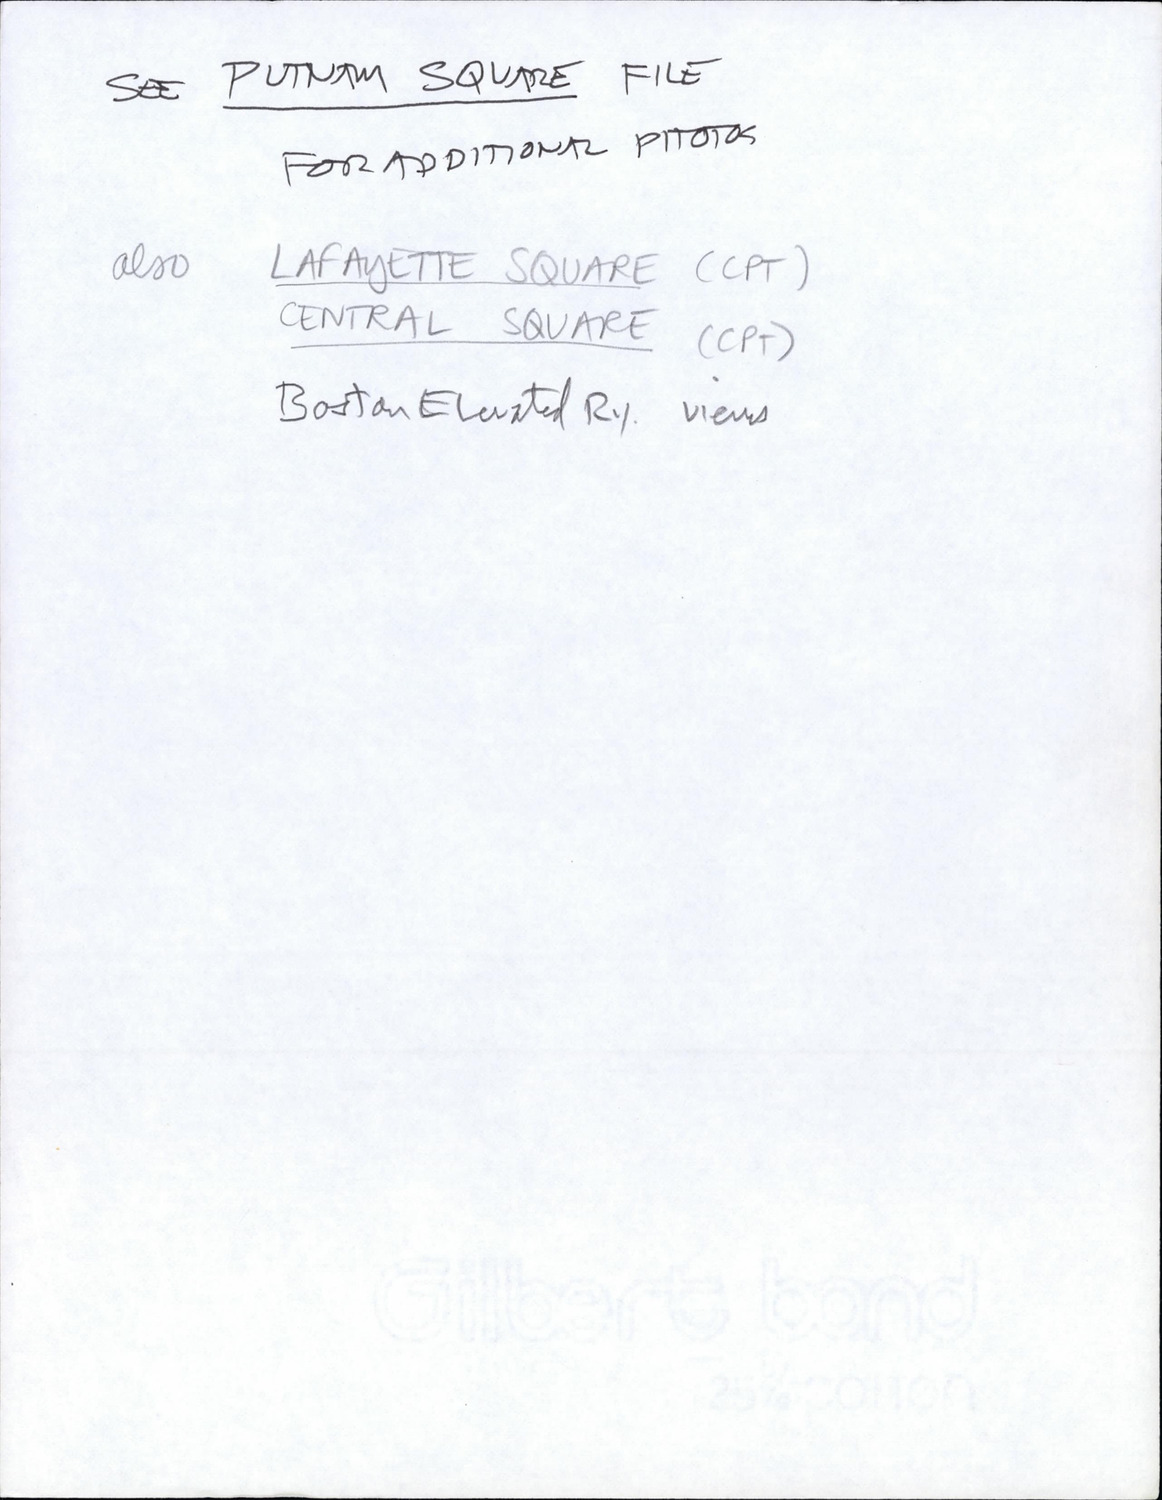 SEE PUTNAM SQUARE FILE
FOR ADDITIONAL PHOTOS
also LAFAYETTE SQUARE (CPT)
CENTRAL SQUARE (CPT)
Boston Elevated Ry. views
Gilbert bond
25% cotton